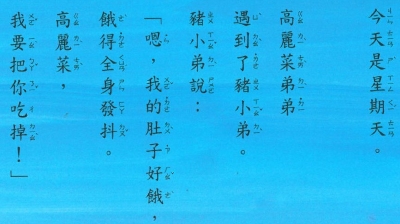 今天是星期天。
高麗菜弟弟
遇到了豬小弟。
豬小弟說：
「嗯，我的肚子好餓，
餓得全身發抖。
高麗菜，
我要把你吃掉！」